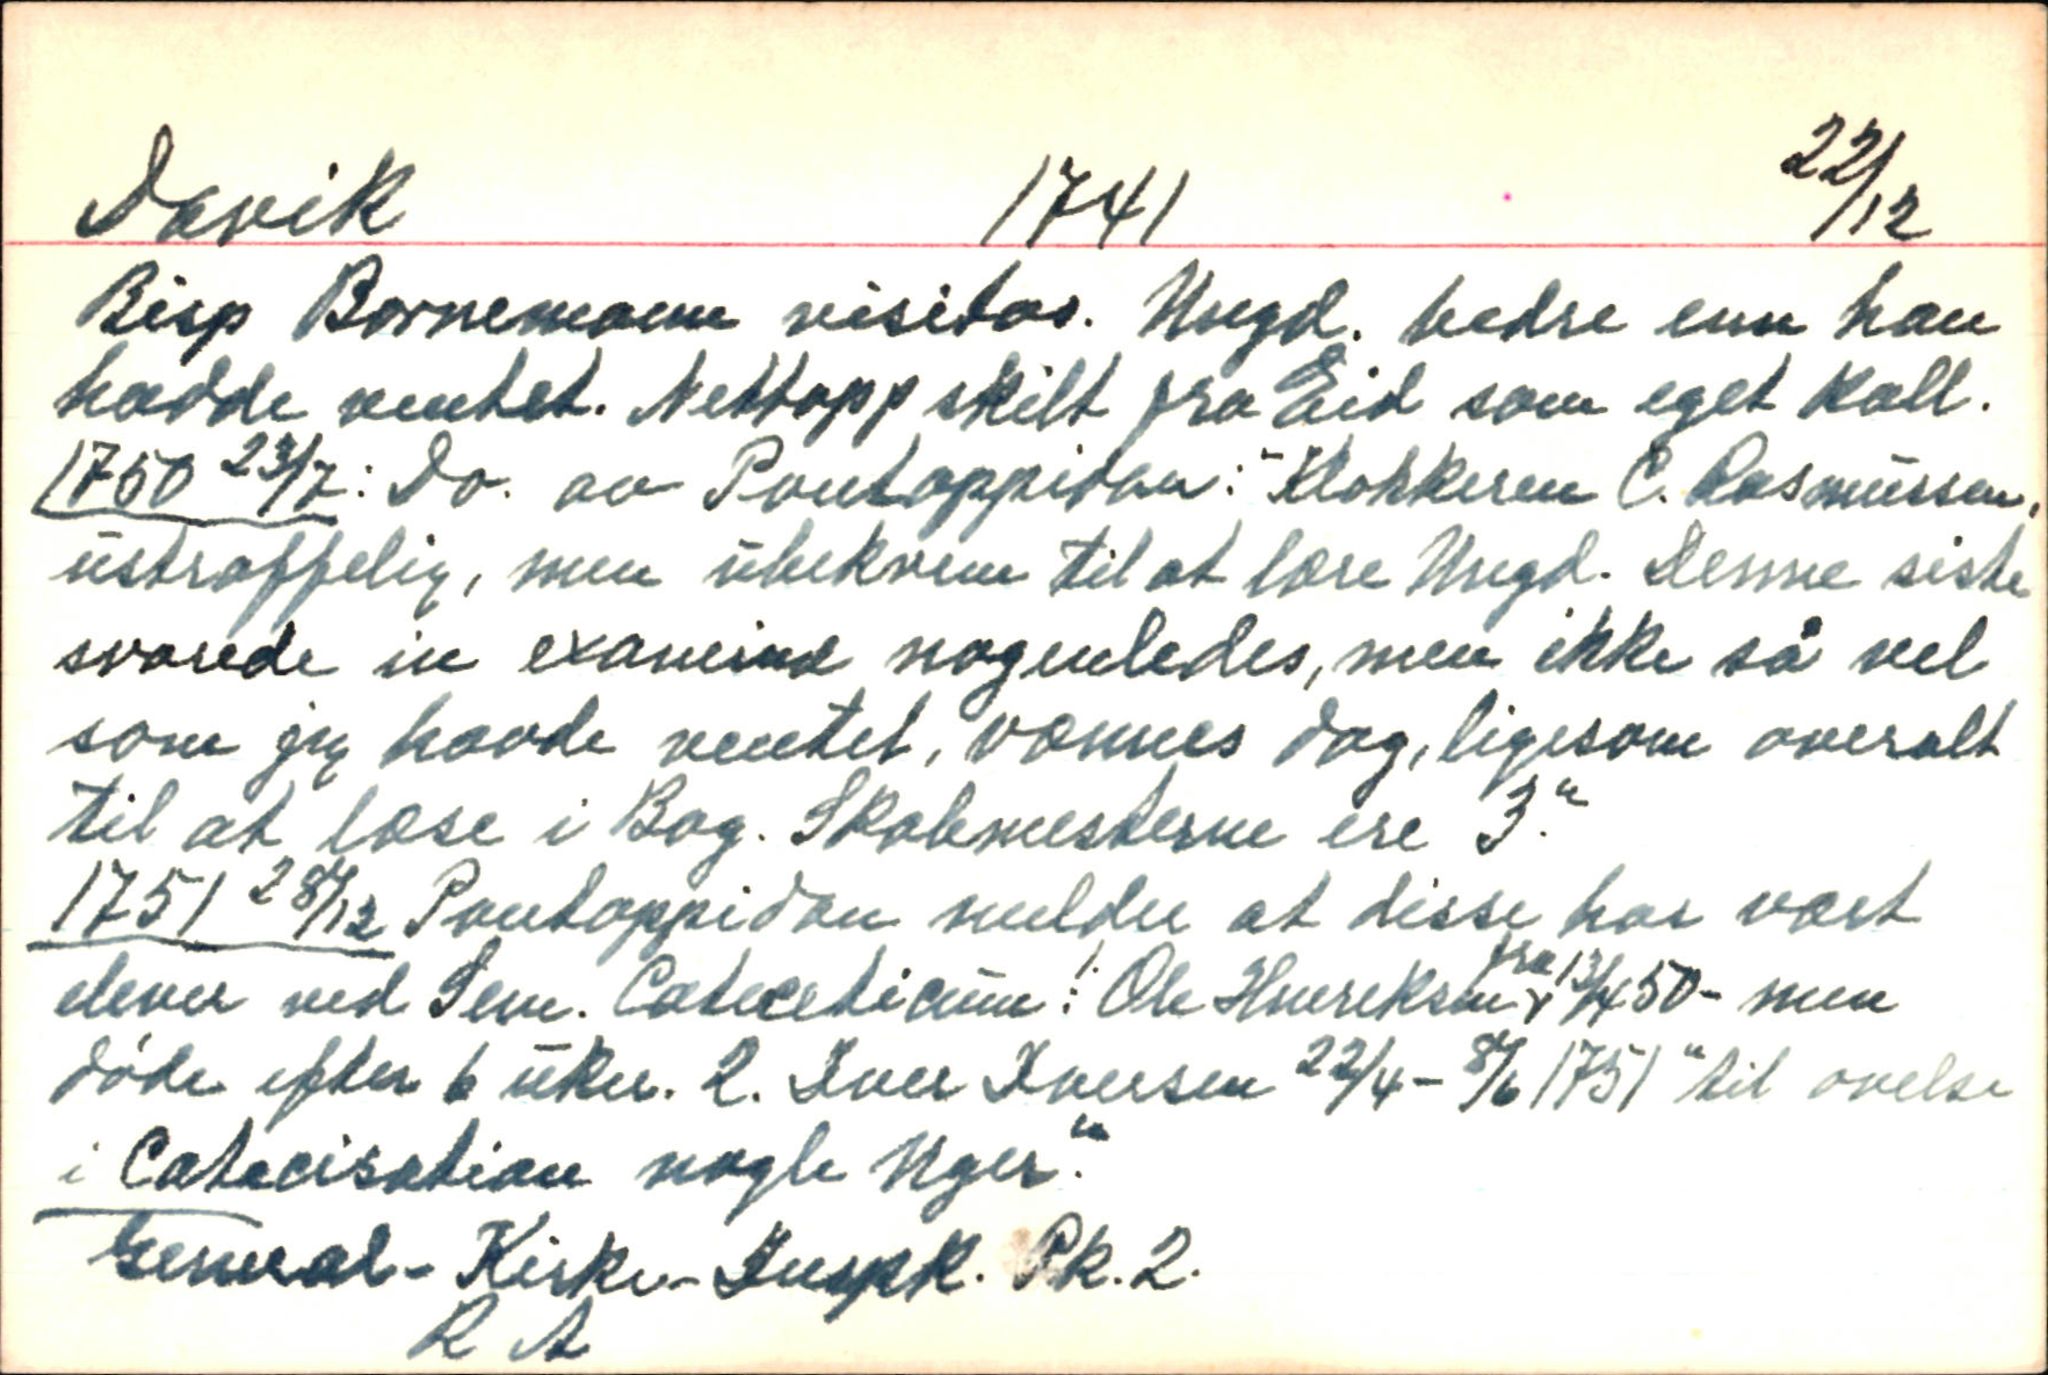 Davik 1741 22/12
Bisp Bornemann visitas. Ungd. bedre enn han
hadde ventet. Nettopp skilt fra Eid som eget kall.
1750 23/7: Do. av Pontoppidan: "Klokkeren C. Rasmussen,
ustraffelig, men ubekvem til at lære Ungd. Denne siste
svarede in examine nogenledes, men ikke så vel
som jeg havde ventet, vænnes dog, ligesom overalt
til at læse i Bog. Skolemesterne ere 3."
1751 28/12 Pontoppidan melder at disse har vært
elever ved Sem. Catecheticum: 1. Ole Henreksen fra 13/4 50 - men
döde efter 6 uker. 2. Iver Iversen 22/4 - 8/6 1751 "til ovelse
i Catecisation nogle Uger."
General-Kirke-Inspk. Pk. 2.
R A